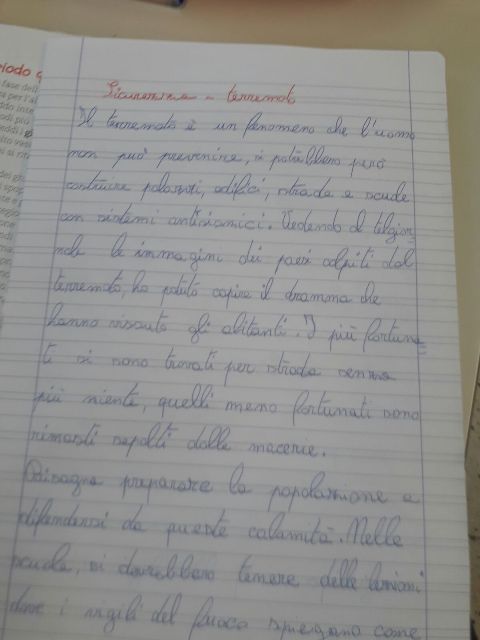 Sicurezza - terremoto
Il terremoto è un fenomeno che l'uomo
non può prevenire, si potrebbero però
costruire palazzi, edifici, strade e scuole
con sistemi antisismici. Vedendo al telegior-
nale le immagini dei paesi colpiti dal
terremoto, ho potuto capire il dramma che
hanno vissuto gli abitanti. I più fortuna=
ti si sono trovati per strada senza
più niente, quelli meno fortunati sono
rimasti sepolti dalle macerie.
Bisogna preparare la popolazione a
difendersi da queste calamità. Nelle
scuole, si dovrebbero tenere delle lezioni
dove i vigili del fuoco spiegano come